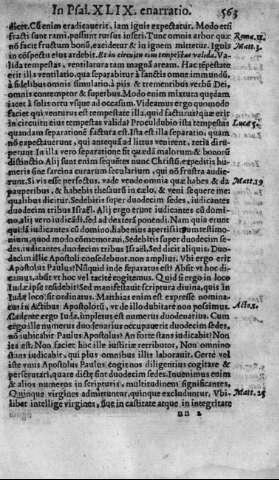 In Psal. XLIX. enarratio. 563
dicet. Cùm enim eradicauerit, iam ignis expectatur. Modò enim
fracti sunt rami, possunt rursus inseri. Tunc omnis arbor quæ Roma. 11.
nō facit fructum bonū, excidetur & in ignem mittetur. Ignis Matt. 3.
in cōspectu eius ardebit. Et in circuitu eius tempestas valida. Va-
lida tempestas, ventilatura tam magnā aream. Hac tēpestate
erit illa ventilatio, qua separabitur à sanctis omne immundū,
à fidelibus omnis simulatio, à piis & trementibus verbū Dei,
omnis contemptor & superbus. Modò enim mixtura quædam
iacet à solis ortu vsque ad occasum. Videamus ergo quomodo
faciet qui venturus est
in circuitu eius tempestas valida? Proculdubio ista tempestas Luc. 5.
quandam separationē factura est. Ista est illa separatio, quam
nō expectauerunt, qui antequā ad litus venirent, retia diru-
perunt. In illa vero separatione fit quædā malorum & bonorū
distinctio. Alij sunt enim sequentes nunc Christū, expeditis hu-
meris sine sarcina curarum secularium, qui nō frustra audie-
runt, Si vis esse perfectus, vade vende omnia quæ habes & da Matt. 19
pauperibus, & habebis thesaurū in cælo, & veni sequere me:
qualibus dicitur, Sedebitis super duodecim sedes, iudicantes
duodecim tribus Israël. Alij ergo erunt iudicantes cū domi-
no, alij vero iudicādi, sed ad dexterā ponendi. Nam quia erunt
quidā iudicantes cū domino, habemus apertissimum testimo-
nium, quod modò commemoraui, Sedebitis super duodecim se-
des iudicantes duodecim tribus Israël. Sed dicit aliquis: Duo-
decim illic Apostoli consedebunt, non amplius. Vbi ergo erit
Apostolus Paulus? Nunquid inde separatus est? Absit vt hoc di-
camus, absit vt hoc vel tacitè cogitemus. Quid si ergo in loco
Iudæ ipse residebit? Sed manifestauit scriptura diuina, quis in
Iudæ locum sit ordinatus. Matthias enim est expresse nomina-
tus in Actibus Apostolorū, vt de illo dubitare non possimus. Act. 1.
Cadente ergo Iuda, impletus est numerus duodenarius. Cum
ergo ille numerus duodenarius occupauerit duodecim sedes,
nō iudicabit Paulus Apostolus? An forte stans iudicabit? Non
ita est. Non faciet hoc ille iustitiæ retributor. Non omnino
stans iudicabit, qui plus omnibus illis laborauit. Certè vel
iste vnus Apostolus Paulus cogit nos diligentius cogitare &
perscrutari, quare dictæ sint duodecim sedes. Inuenimus enim
& alios numeros in scripturis, multitudinem significantes.
Quinque virgines admittuntur, quinque excluduntur. Vbi- Matt. 25
libet intellige virgines, siue in castitate atque in integritate
nn 2